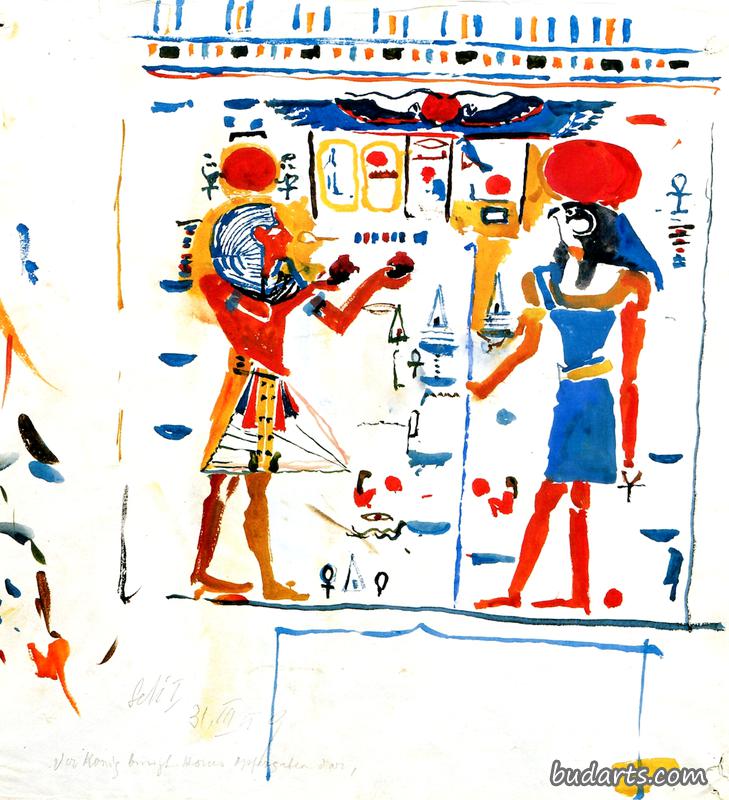 Seti I
31.III
Der König bringt Horus Opfergaben dar,
budarts.com